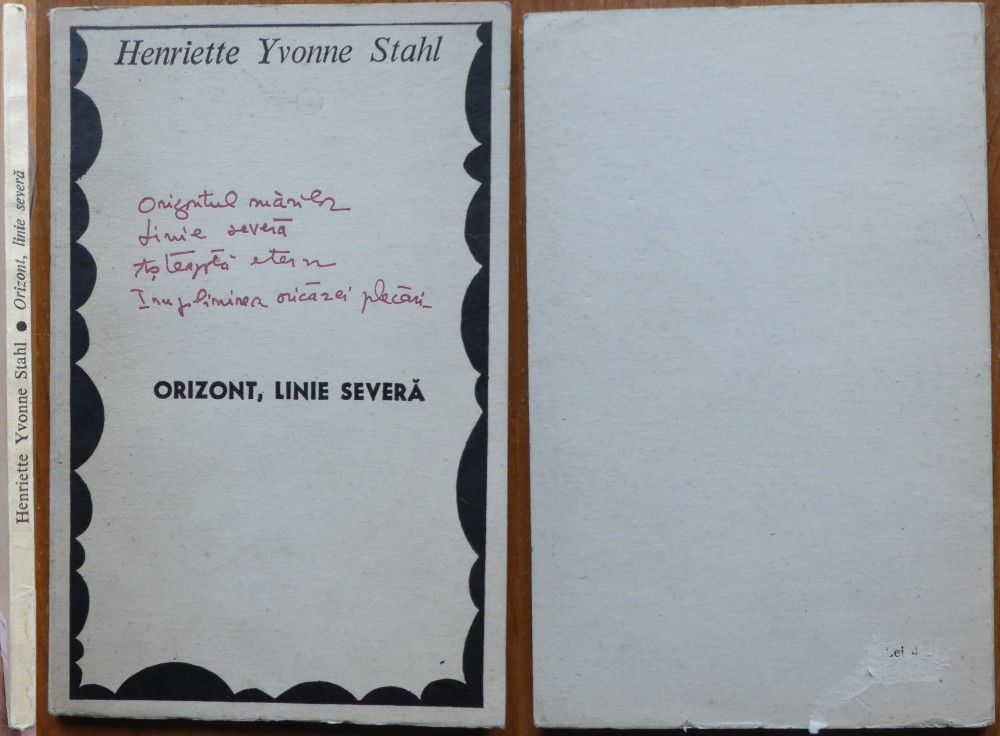 Henriette Yvonne Stahl ● Orizont, linie severă
Henriette Yvonne Stahl
Orizontul mărilor
Linie severă
Așteaptă etern
Împlinirea oricărei plecări
ORIZONT, LINIE SEVERĂ
Lei 4